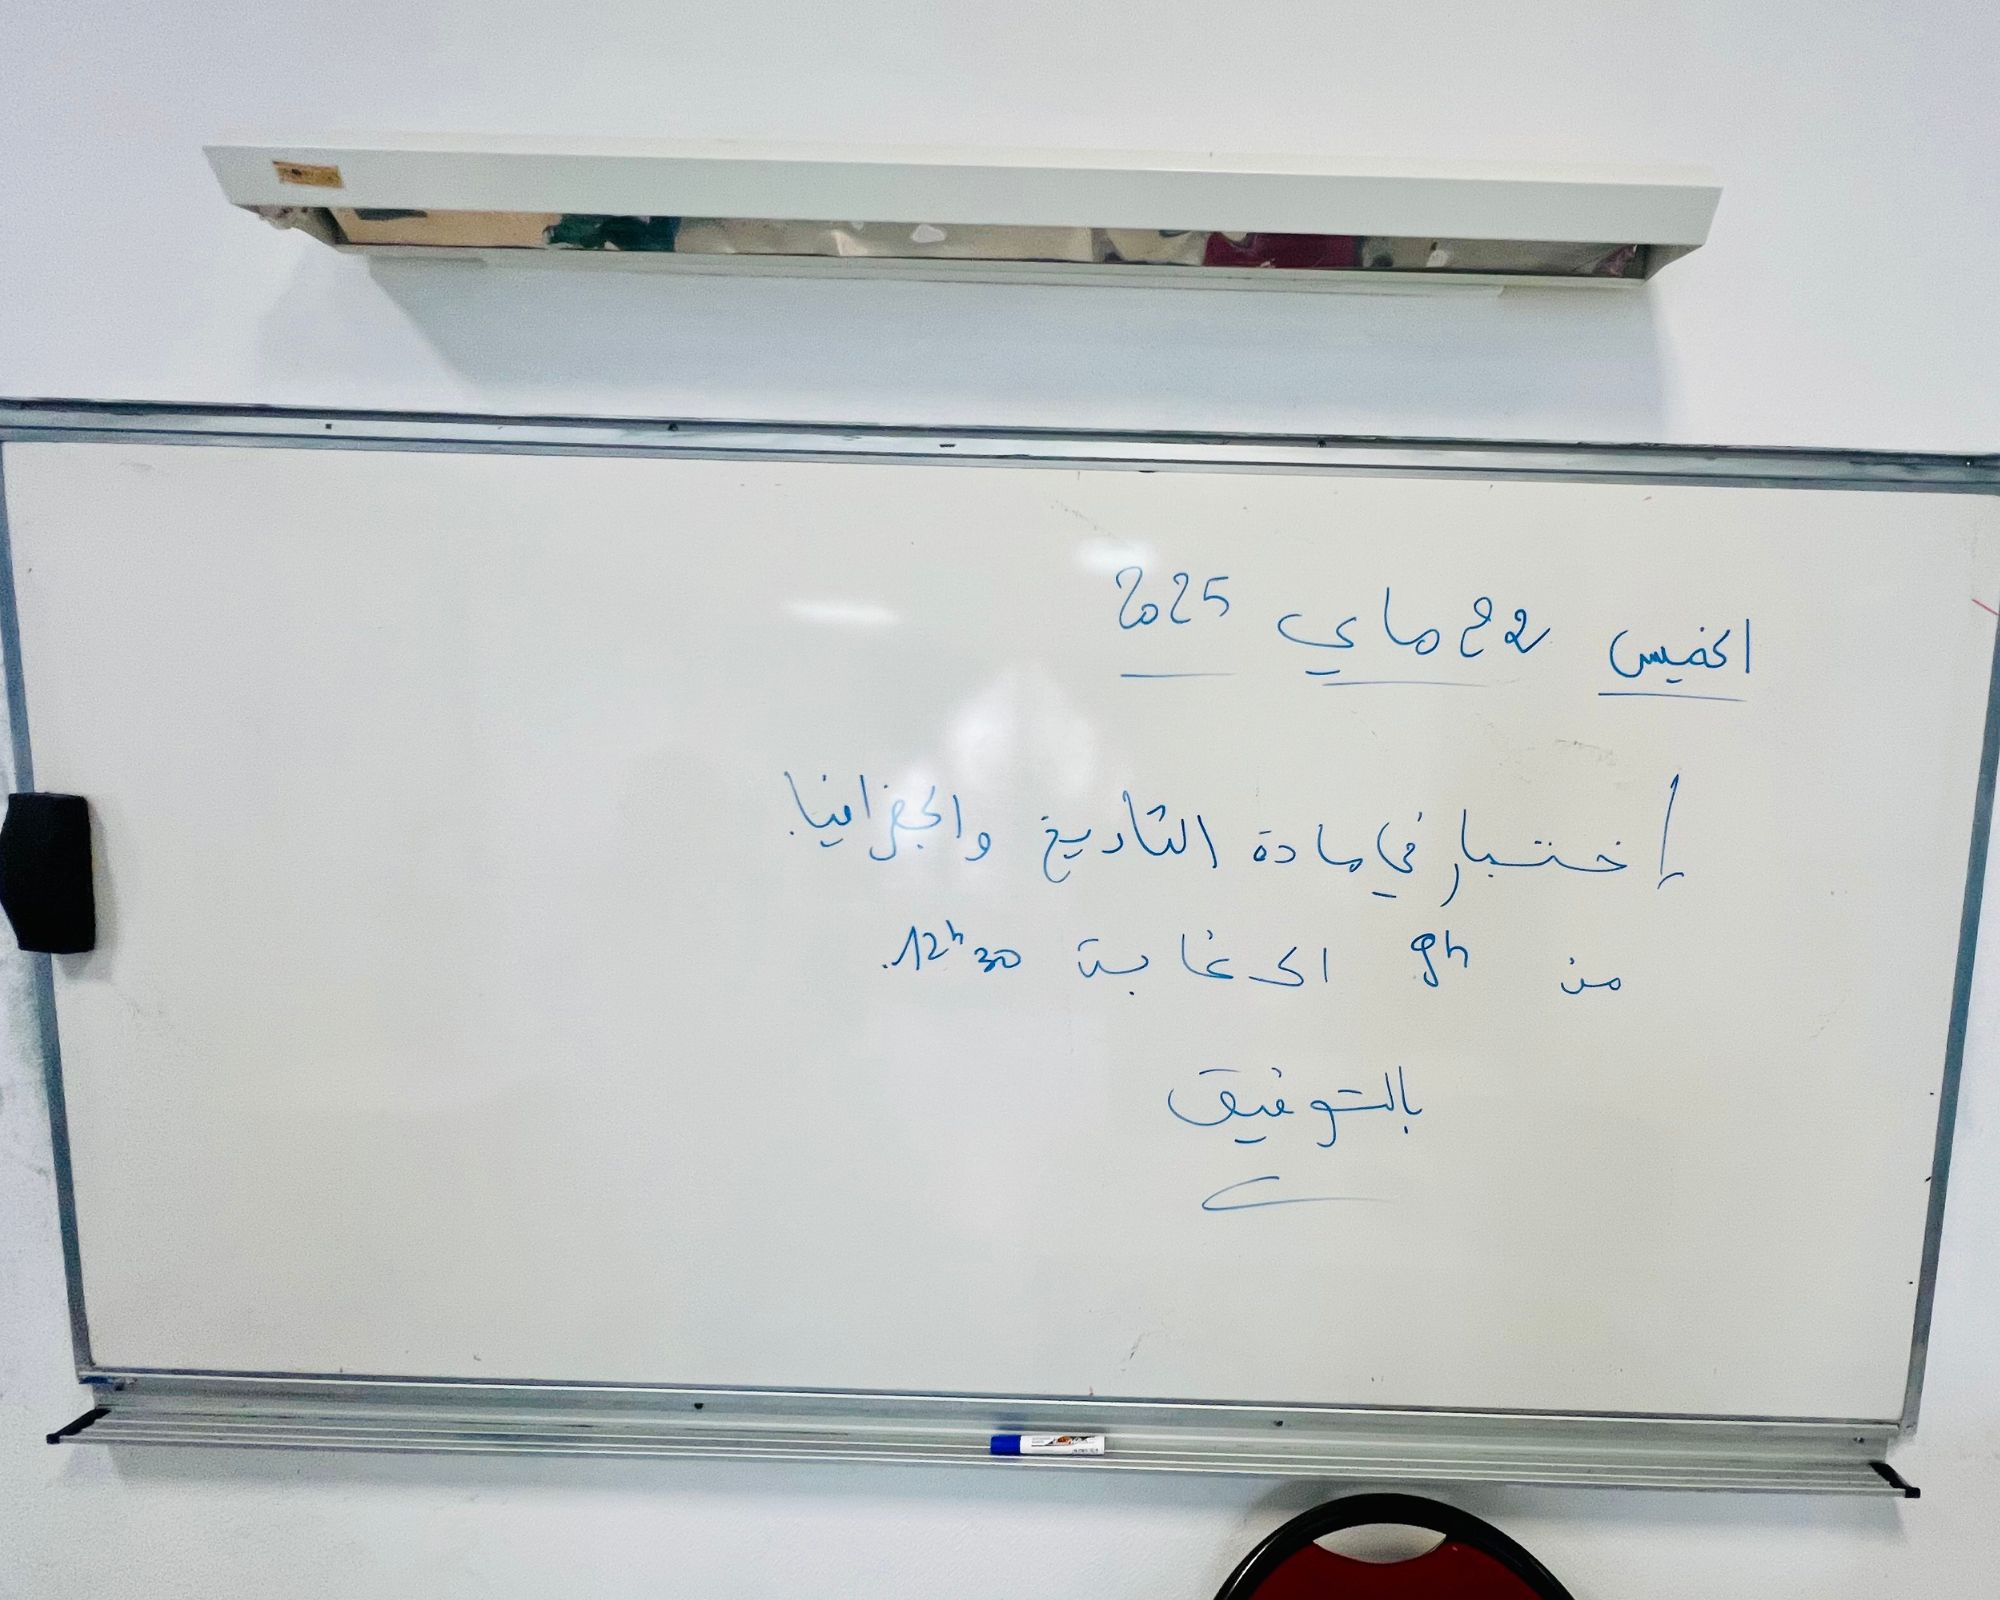 الخميس 22 ماي 2025
إختبار في مادة التاريخ والجغرافيا.
من 9h الى غاية 12h30.
بالتوفيق